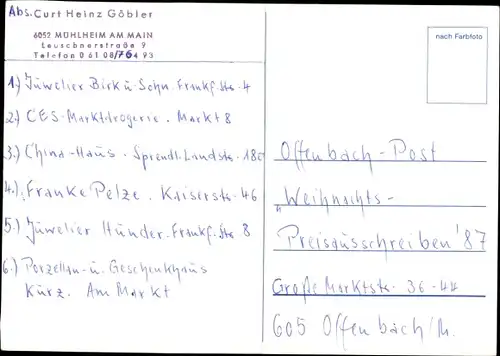 Abs. Curt Heinz Göbler
6052 MÜHLHEIM AM MAIN
Leuschnerstraße 9
Telefon 0 61 08/76493
1.) Juwelier Birk u. Sohn. Frankf. Str. 4
2.) CES-Marktdrogerie. Markt 8
3.) China-Haus. Sprendl. Landstr.
4.) Franke Pelze. Kaiserstr. 46
5.) Juwelier Hünder. Frankf. Str. 8
6.) Porzellan-u. Geschenkhaus
Kurz. Am Markt
nach Farbfoto
Offenbach-Post
"Weihnachts-
Preisausschreiben '87
Große Marktstr. 36-44
605 Offenbach/M.